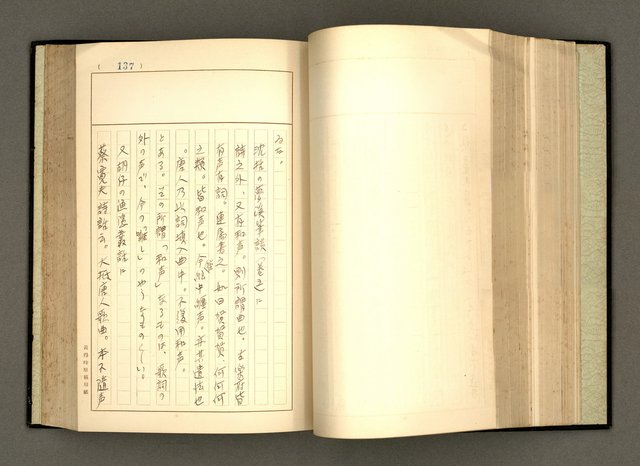 ( 137 )
ゐた。
沈括の夢溪筆談（卷五）に
詩之外、又有和声。則所謂曲也。古樂府皆
有声有詞。連属書之。如曰賀賀賀、何何何
之類。皆和声也。今管絃中纏声。亦其遺法也
。唐人乃以詞填入曲中。不復用和声。
とある。この所謂「和声」なるものは、歌詞の
外の声で、今の「囃し」のやうなものらしい。
又胡仔の漁隠叢話に
蔡寛夫詩話云。大抵唐人歌曲。本不隨声
黃得時原稿用紙